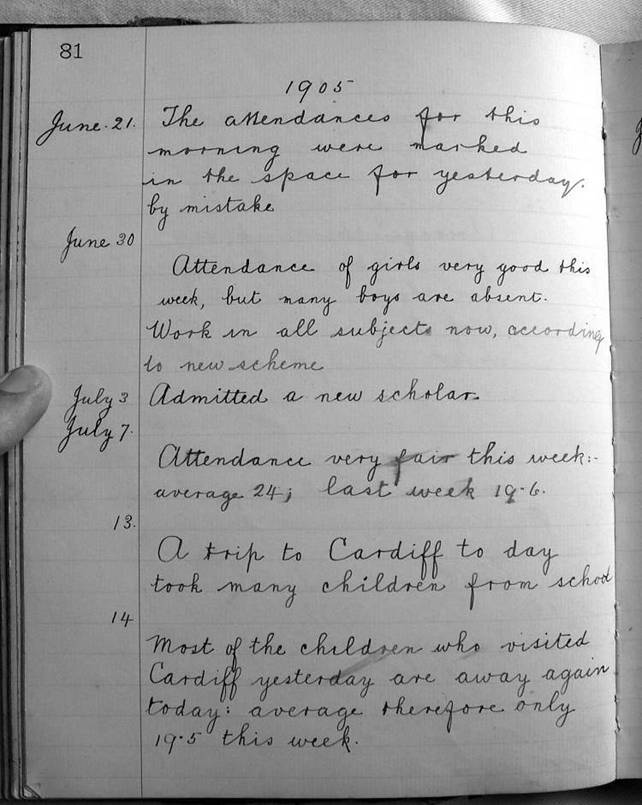 81
1905
June. 21. The attendances for this
morning were marked
in the space for yesterday.
by mistake
June 30
Attendance of girls very good this
week, but many boys are absent.
Work in all subjects now, according
to new scheme
July 3 Admitted a new scholar.
July 7.
Attendance very fair this week:-
average 24; last week 19.6.
13.
A trip to Cardiff to day
took many children from school
14
Most of the children who visited
Cardiff yesterday are away again
today: average therefore only
19.5 this week.